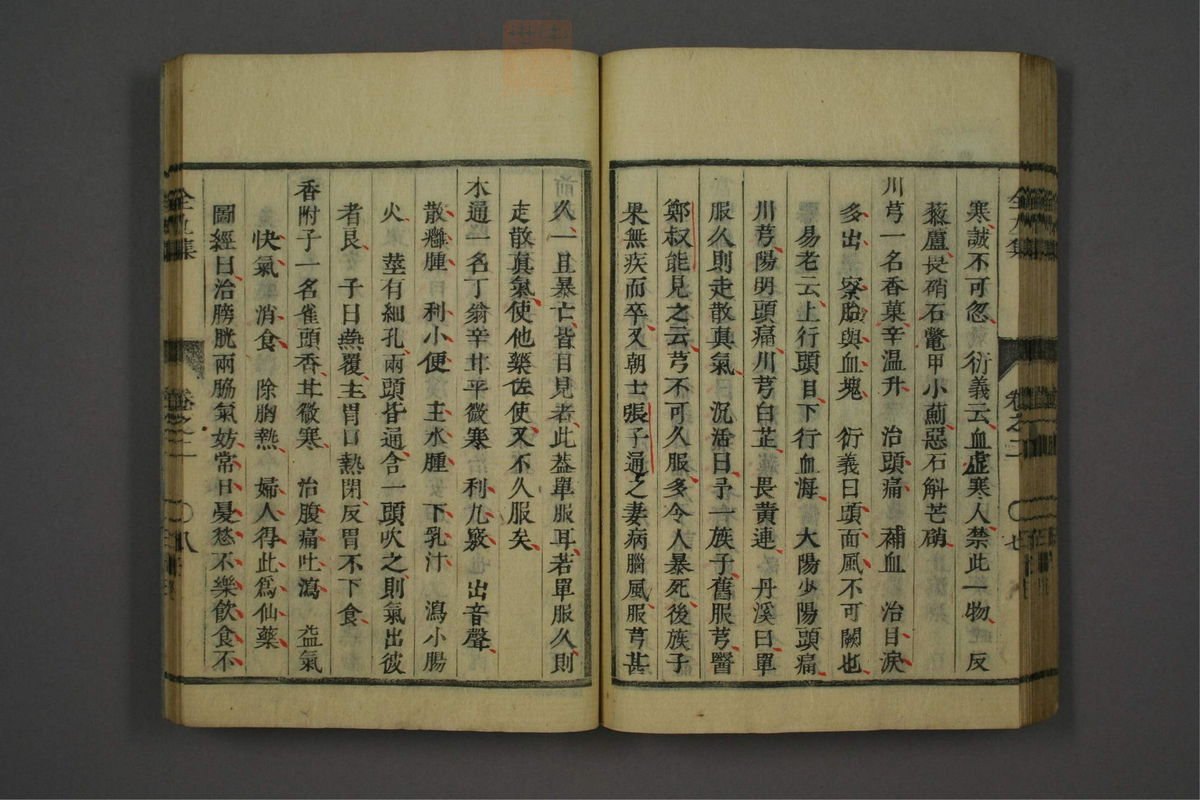 寒誠不可忽 衍義云血虛寒人禁此一物 反
藜蘆畏硝石鼈甲小薊惡石斛芒硝
川芎一名香菓辛温升 治頭痛 補血 治目淚
多出 寮胎與血塊 衍義曰頭面風不可闕也
易老云上行頭目下行血海 大陽少陽頭痛
川芎陽明頭痛川芎白芷 畏黄連 丹溪曰單
服久則走散真氣 沉活曰予一族子舊服芎醫
鄭叔能見之云芎不可久服多令人暴死後族子
果無疾而卒又朝士張子通之妻病腦風服芎甚
久一旦暴亡皆目見者此葢單服耳若單服久則
走散真氣使他藥佐使又不久服矣
木通一名丁翁辛甘平微寒 利九竅 出音聲
散癰腫 利小便 主水腫 下乳汁 瀉小腸
火 莖有細孔兩頭皆通含一頭吹之則氣出彼
者良 子曰燕覆主胃口熱閉反胃不下食
香附子一名雀頭香甘微寒 治腹痛吐瀉 益氣
快氣 消食 除胸熱 婦人得此爲仙藥
圖經曰治膀胱兩脇氣妨常日憂愁不樂飲食不
全九集
卷之二
七
全九集
卷之二
八